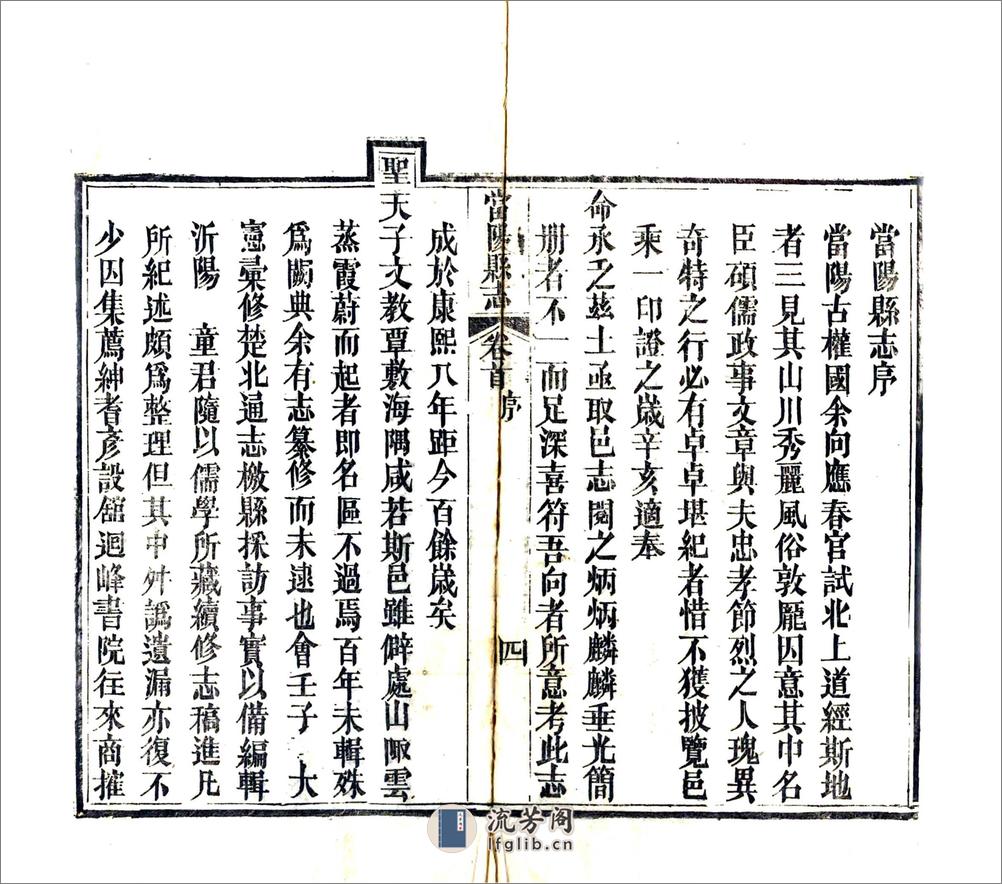 當陽縣志序
當陽古權國余向應春官試北上道經斯地
者三見其山川秀麗風俗敦龐因意其中名
臣碩儒政事文章與夫忠孝節烈之人瑰異
奇特之行必有卓卓堪紀者惜不獲披覽邑
乘一印證之歲辛亥適奉
命承乏茲土亟取邑志閱之炳炳麟麟垂光簡
册者不一而足深喜符吾向者所意考此志
當陽縣志 卷首 序 四
成於康熙八年距今百餘歲矣
聖天子文教覃敷海隅咸若斯邑雖僻處山陬雲
蒸霞蔚而起者即名區不過焉百年未輯殊
爲闕典余有志纂修而未逮也會壬子 大
憲彙修楚北通志檄縣採訪事實以備編輯
沂陽 童君隨以儒學所藏續修志稿進凡
所紀述頗爲整理但其中舛譌遺漏亦復不
少因集薦紳耆彥設舘迴峰書院往來商搉
流芳阁
lfglib.cn